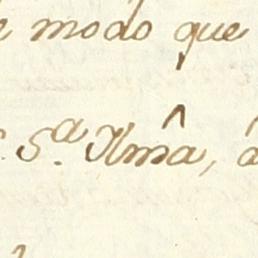 modo que
S.ª Ilmâ, á